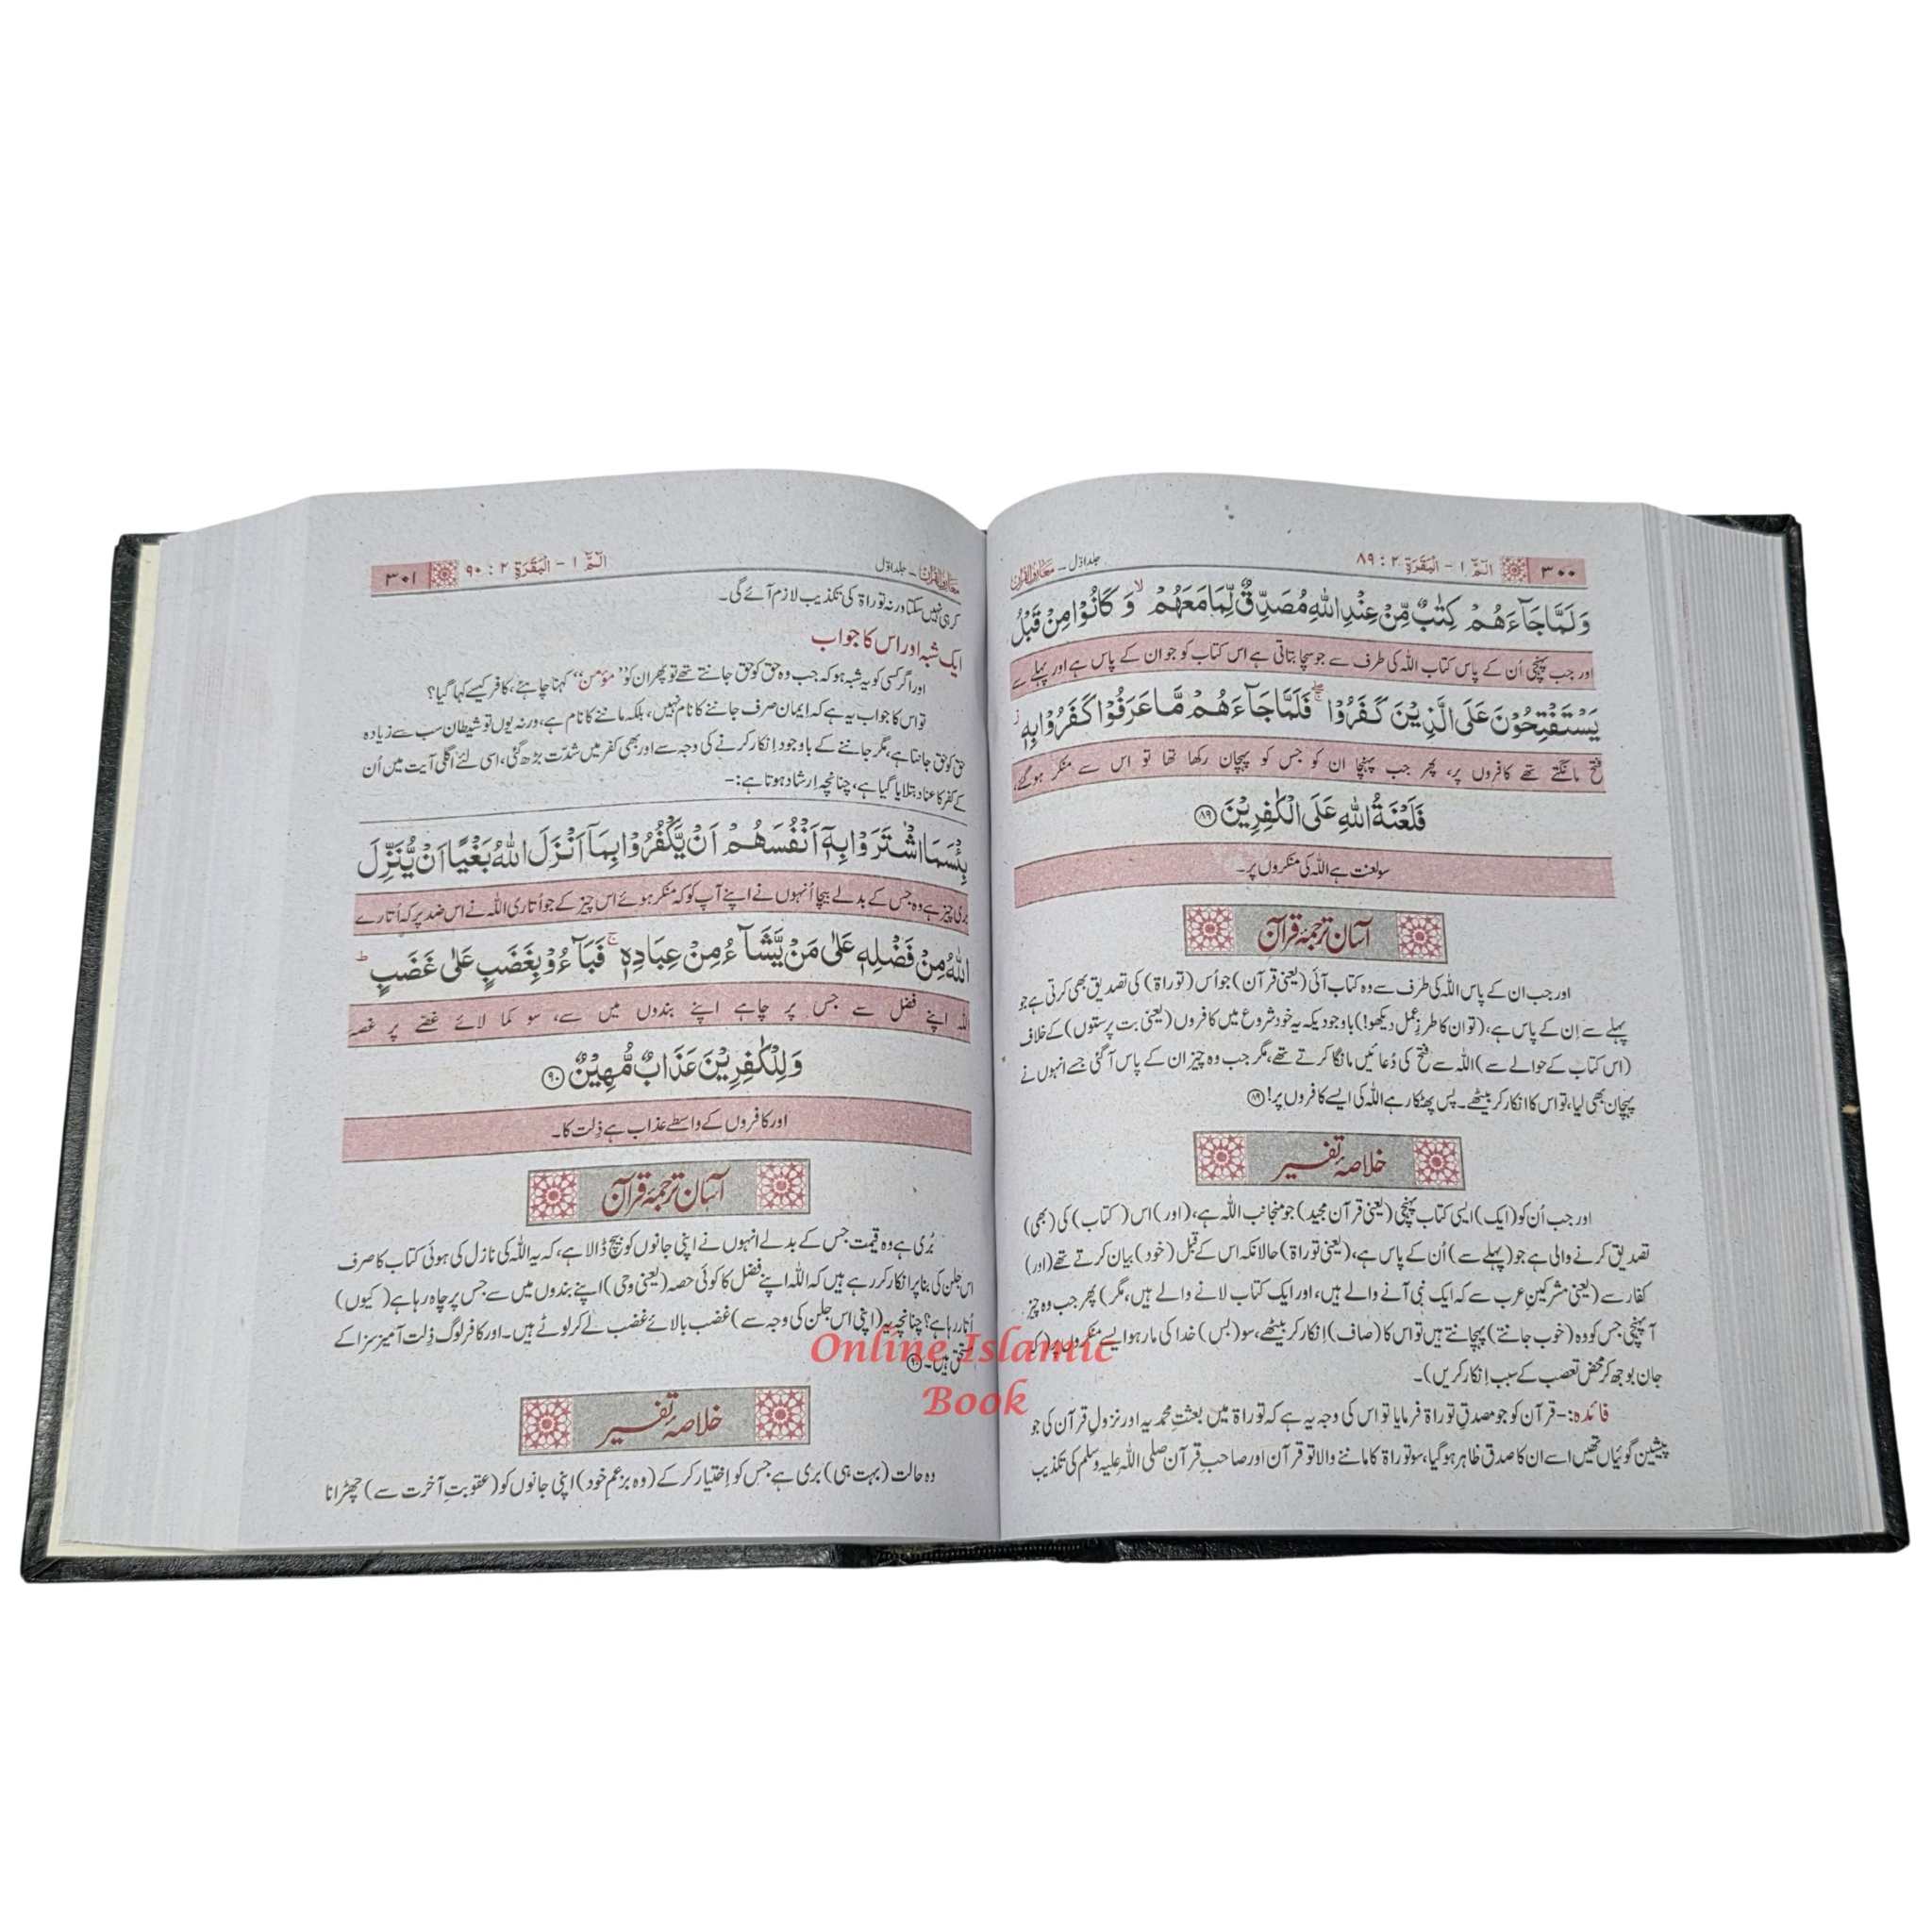 ۳۰۰ الٓمّٓ ۱ - الْبَقَرَۃِ ۲ : ۸۹ جلد اوّل ـ معارف القرآن
وَلَمَّا جَآءَهُمْ كِتٰبٌ مِّنْ عِنْدِ اللّٰهِ مُصَدِّقٌ لِّمَا مَعَهُمْ ۙ وَ كَانُوْا مِنْ قَبْلُ
اور جب پہنچی اُن کے پاس کتاب اللہ کی طرف سے جو سچا بتاتی ہے اس کتاب کو جو ان کے پاس ہے اور پہلے سے
يَسْتَفْتِحُوْنَ عَلَى الَّذِيْنَ كَفَرُوْا ۚۖ فَلَمَّا جَآءَهُمْ مَّا عَرَفُوْا كَفَرُوْا بِهٖ ؗ
فتح مانگتے تھے کافروں پر، پھر جب پہنچا ان کو جس کو پہچان رکھا تھا تو اس سے منکر ہوگئے،
فَلَعْنَةُ اللّٰهِ عَلَى الْكٰفِرِيْنَ ﴿۸۹﴾
سو لعنت ہے اللہ کی منکروں پر۔
آسان ترجمۂ قرآن
اور جب ان کے پاس اللہ کی طرف سے وہ کتاب آئی (یعنی قرآن) جو اُس (توراۃ) کی تصدیق بھی کرتی ہے جو
پہلے سے اِن کے پاس ہے، (تو ان کا طرزِ عمل دیکھو!) باوجودیکہ یہ خود شروع میں کافروں (یعنی بت پرستوں) کے خلاف
(اس کتاب کے حوالے سے) اللہ سے فتح کی دُعائیں مانگا کرتے تھے، مگر جب وہ چیز ان کے پاس آگئی جسے انہوں نے
پہچان بھی لیا، تو اس کا انکار کر بیٹھے۔ پس پھٹکار ہے اللہ کی ایسے کافروں پر! ﴿۸۹﴾
خلاصۂ تفسیر
اور جب اُن کو (ایک) ایسی کتاب پہنچی (یعنی قرآن مجید) جو منجانب اللہ ہے، (اور) اس (کتاب) کی (بھی)
تصدیق کرنے والی ہے جو (پہلے سے) اُن کے پاس ہے، (یعنی توراۃ) حالانکہ اس کے قبل (خود) بیان کرتے تھے (اور)
کفار سے (یعنی مشرکینِ عرب سے کہ ایک نبی آنے والے ہیں، اور ایک کتاب لانے والے ہیں، مگر) پھر جب وہ چیز
آ پہنچی جس کو وہ (خوب جانتے) پہچانتے ہیں تو اس کا (صاف) اِنکار کر بیٹھے، سو (بس) خدا کی مار ہو ایسے منکروں پر (کہ
جان بوجھ کر محض تعصب کے سبب اِنکار کریں)۔
فائدہ:- قرآن کو جو مصدقِ توراۃ فرمایا تو اس کی وجہ یہ ہے کہ توراۃ میں بعثتِ محمدیہ اور نزولِ قرآن کی جو
پیشین گوئیاں تھیں اسے ان کا صدق ظاہر ہوگیا، سو توراۃ کا ماننے والا تو قرآن اور صاحبِ قرآن صلی اللہ علیہ وسلم کی تکذیب
معارف القرآن ـ جلد اوّل الٓمّٓ ۱ - الْبَقَرَۃِ ۲ : ۹۰ ۳۰۱
کر ہی نہیں سکتا ورنہ توراۃ کی تکذیب لازم آئے گی۔
ایک شبہ اور اس کا جواب
اور اگر کسی کو یہ شبہ ہو کہ جب وہ حق کو حق جانتے تھے تو پھر ان کو ”مؤمن“ کہنا چاہئے، کافر کیسے کہا گیا؟
تو اس کا جواب یہ ہے کہ ایمان صرف جاننے کا نام نہیں، بلکہ ماننے کا نام ہے، ورنہ یوں تو شیطان سب سے زیادہ
حق کو حق جانتا ہے، مگر جاننے کے باوجود اِنکار کرنے کی وجہ سے اور بھی کفر میں شدّت بڑھ گئی، اسی لئے اگلی آیت میں اُن
کے کفر کا عناد بتلایا گیا ہے، چنانچہ اِرشاد ہوتا ہے:-
بِئْسَمَا اشْتَرَوْا بِهٖۤ اَنْفُسَهُمْ اَنْ يَّكْفُرُوْا بِمَاۤ اَنْزَلَ اللّٰهُ بَغْيًا اَنْ يُّنَزِّلَ
بری چیز ہے وہ جس کے بدلے بیچا اُنہوں نے اپنے آپ کو کہ منکر ہوئے اس چیز کے جو اُتاری اللہ نے اس ضد پر کہ اُتارے
اللّٰهُ مِنْ فَضْلِهٖ عَلٰى مَنْ يَّشَآءُ مِنْ عِبَادِهٖ ۚ فَبَآءُوْ بِغَضَبٍ عَلٰى غَضَبٍ ؕ
اللہ اپنے فضل سے جس پر چاہے اپنے بندوں میں سے، سو کما لائے غصے پر غصہ
وَ لِلْكٰفِرِيْنَ عَذَابٌ مُّهِيْنٌ ﴿۹۰﴾
اور کافروں کے واسطے عذاب ہے ذِلت کا۔
آسان ترجمۂ قرآن
بُری ہے وہ قیمت جس کے بدلے انہوں نے اپنی جانوں کو بیچ ڈالا ہے، کہ یہ اللہ کی نازل کی ہوئی کتاب کا صرف
اس جلن کی بنا پر انکار کر رہے ہیں کہ اللہ اپنے فضل کا کوئی حصہ (یعنی وحی) اپنے بندوں میں سے جس پر چاہ رہا ہے (کیوں)
اُتار رہا ہے؟ چنانچہ یہ (اپنی اس جلن کی وجہ سے) غضب بالائے غضب لے کر لوٹے ہیں۔ اور کافر لوگ ذِلت آمیز سزا کے
مستحق ہیں۔ ﴿۹۰﴾
خلاصۂ تفسیر
وہ حالت (بہت ہی) بری ہے جس کو اِختیار کرکے (وہ بزعمِ خود) اپنی جانوں کو (عقوبتِ آخرت سے) چھڑانا
Online Islamic
Book